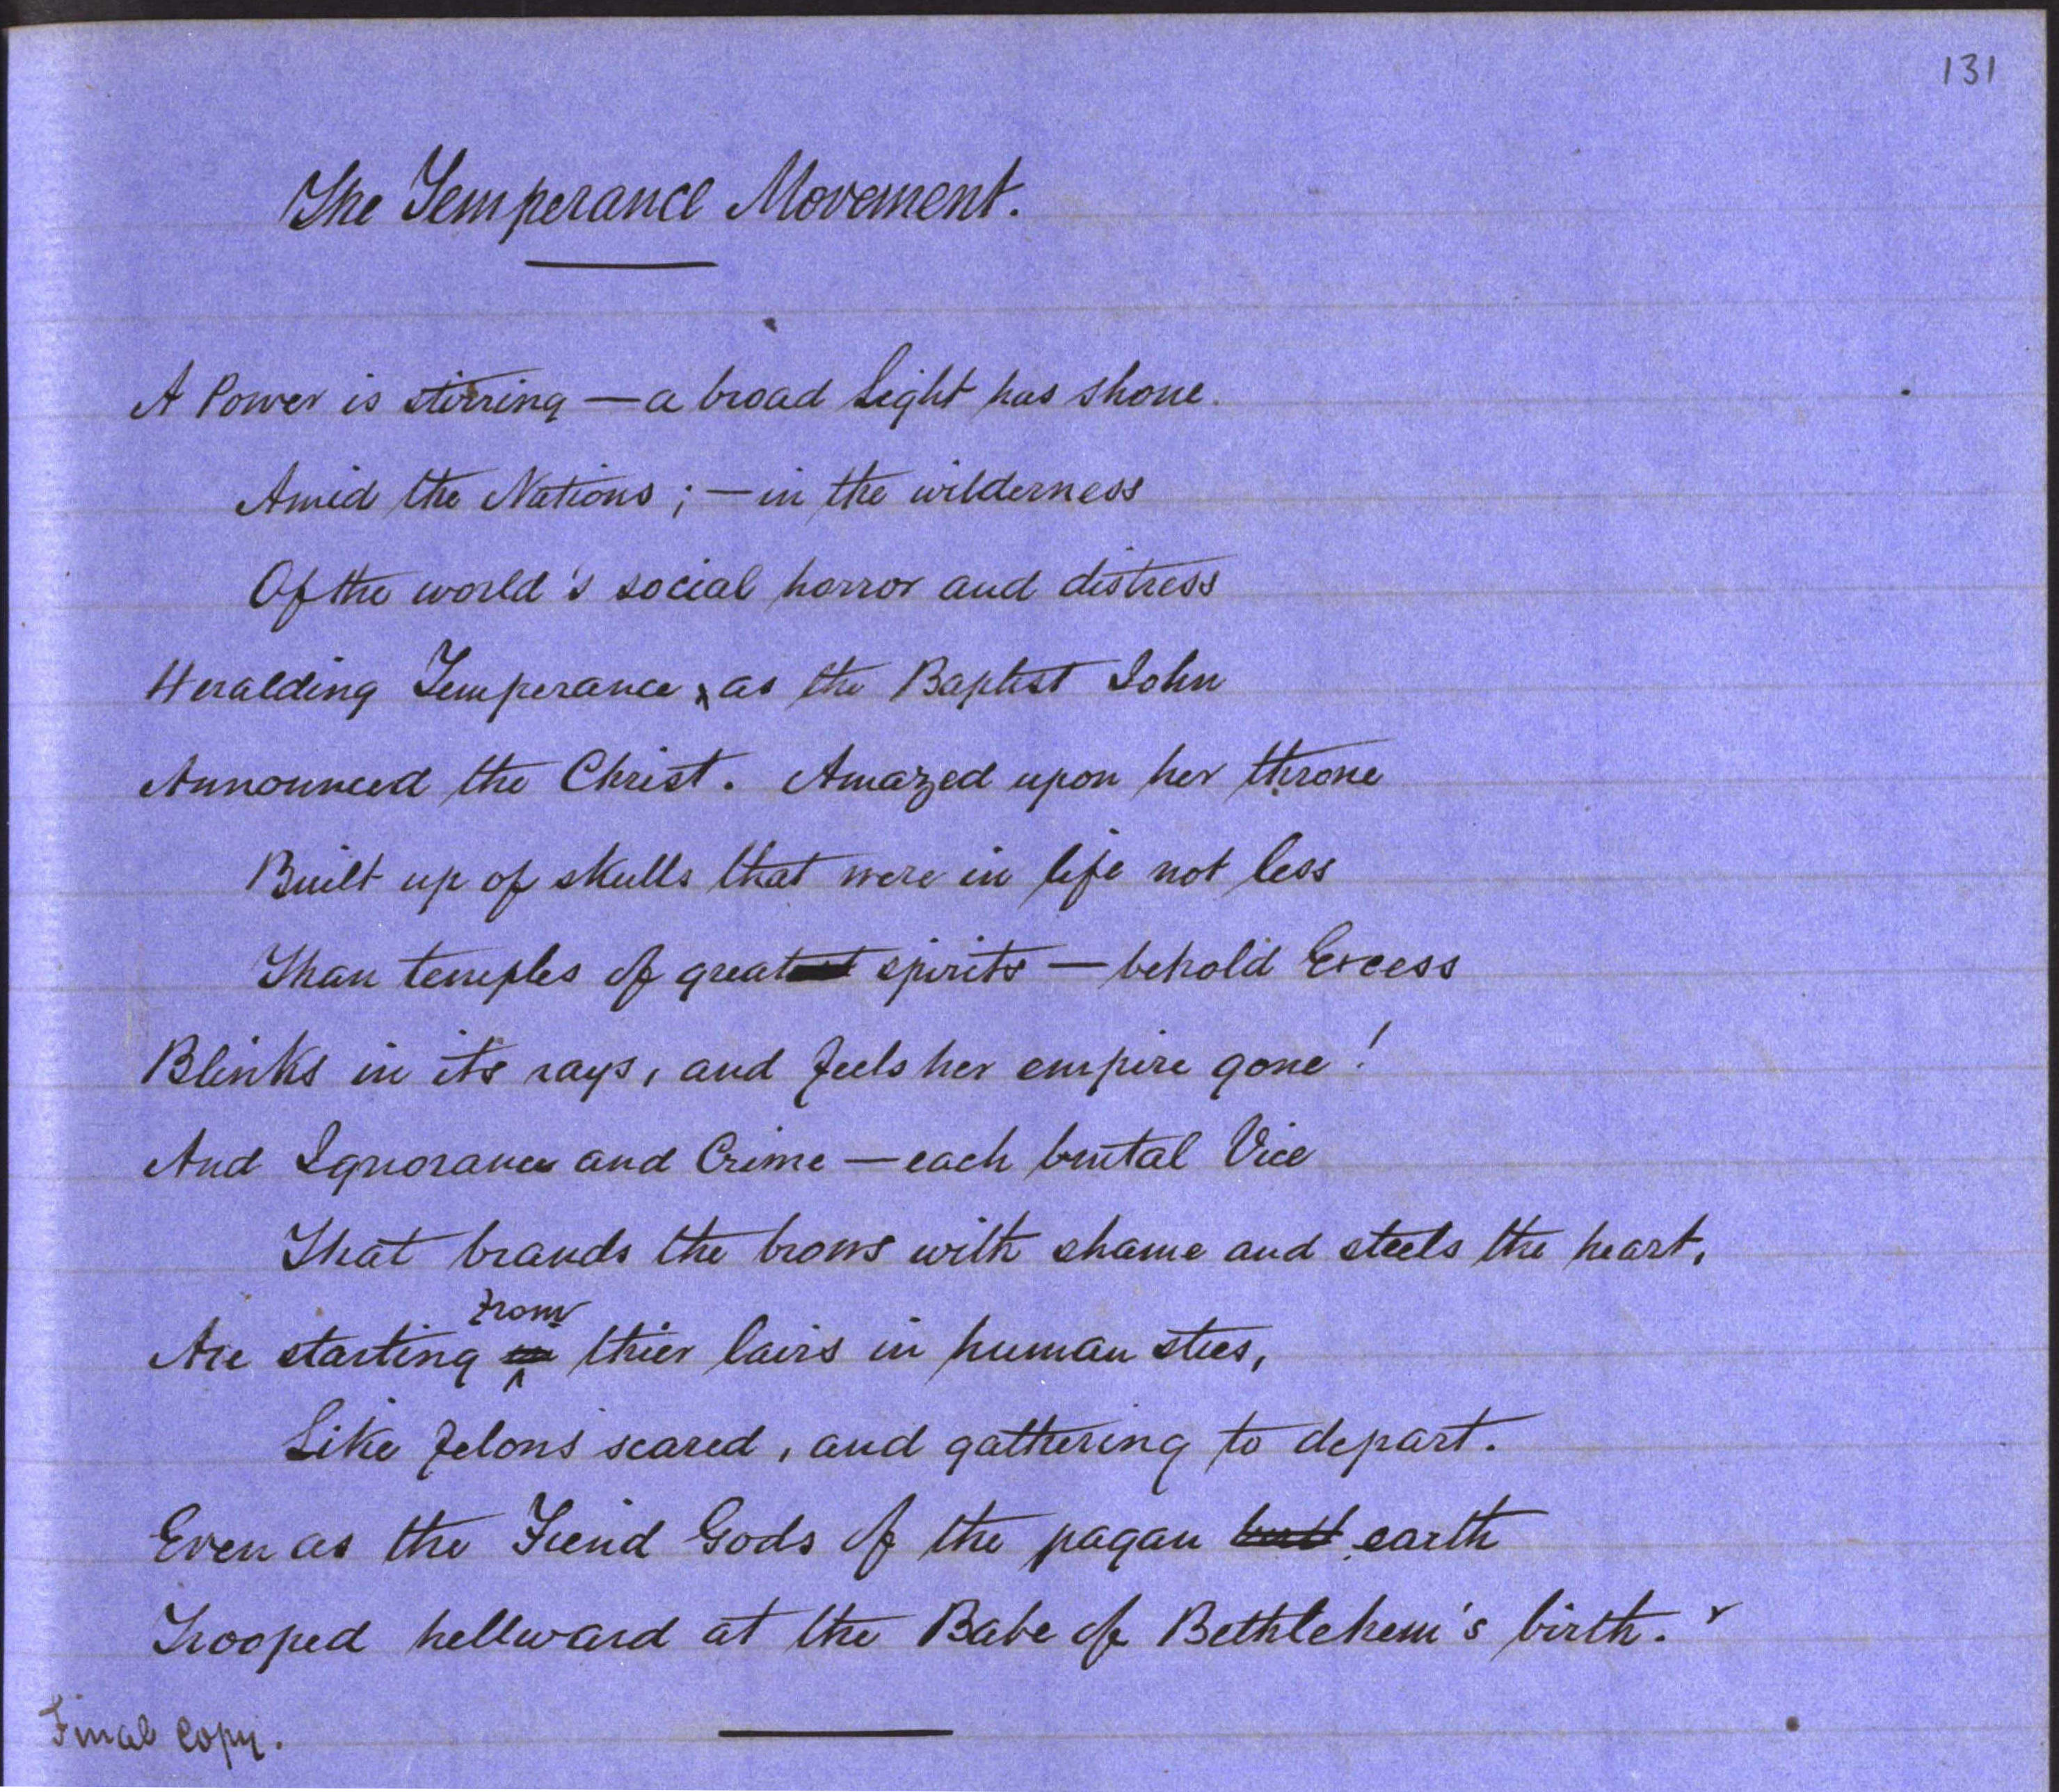 131
The Temperance Movement.
A Power is stirring — a broad light has shone.
Amid the Nations ; — in the wilderness
Of the world's social horror and distress
Heralding Temperance, as the Baptist John
Announced the Christ. Amazed upon her throne
Built up of skulls that were in life not less
Than temples of great spirits — behold Excess
Blinks in its rays, and feels her empire gone !
And Ignorance and Crime — each brutal Vice
That brands the brows with shame and steels the heart,
from
Are starting in thier lairs in human stees,
Like felons scared, and gathering to depart.
Even as the Fiend Gods of the pagan earth
Trooped hellward at the Babe of Bethlehem's birth.
Final Copy.